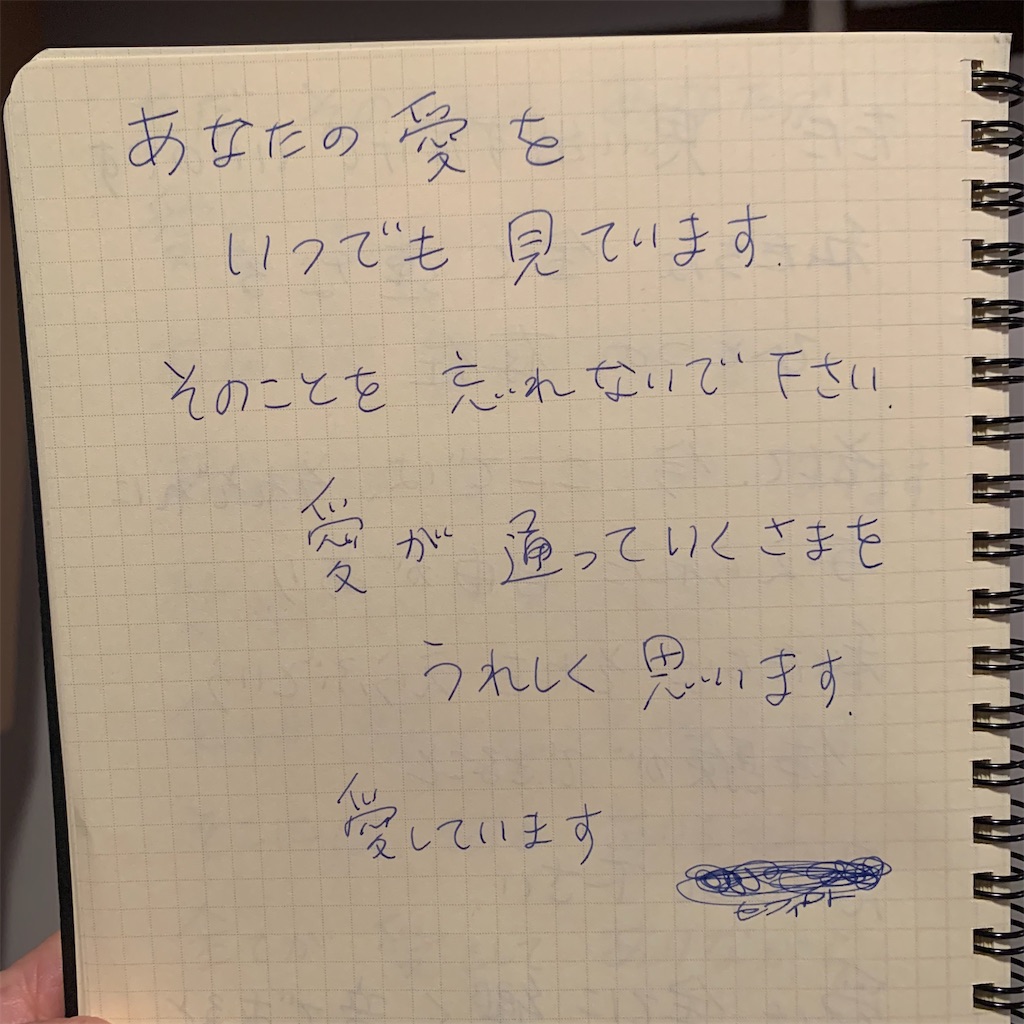 あなたの愛を
いつでも見ています.
そのことを忘れないで下さい.
愛が通っていくさまを
うれしく思います.
愛しています